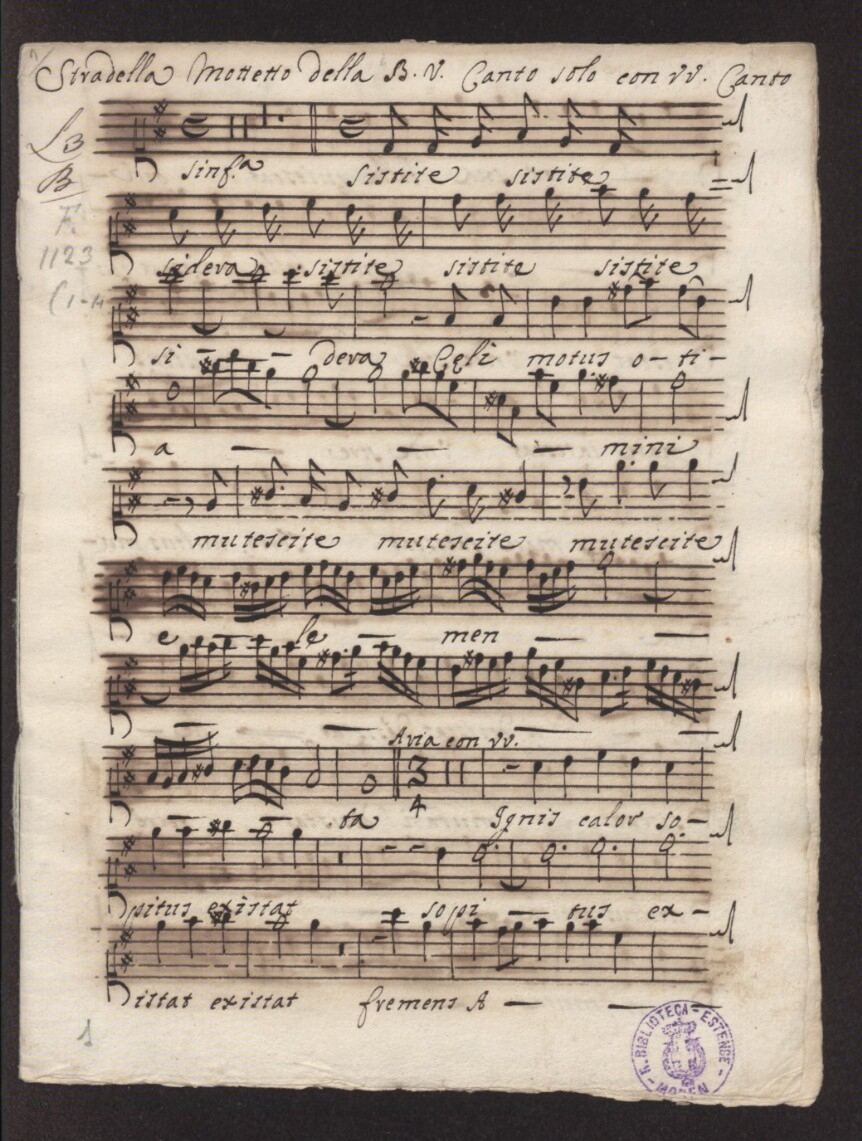 Stradella Mottetto della B. V. Canto solo con vv. Canto
L3
B
F.
1123
(1-14
sinf.a sistite sistite
sidera sistite sistite sistite
si - - dera Cęli motus o - ti -
a - - - mini
mutescite mutescite mutescite
e - le - men - -
- - - -
Aria con vv.
3
4
ta Ignis calor so -
pitus existat sopi - tus ex -
istat existat fremens A - -
1
R. BIBLIOTECA - ESTENSE - MODEN